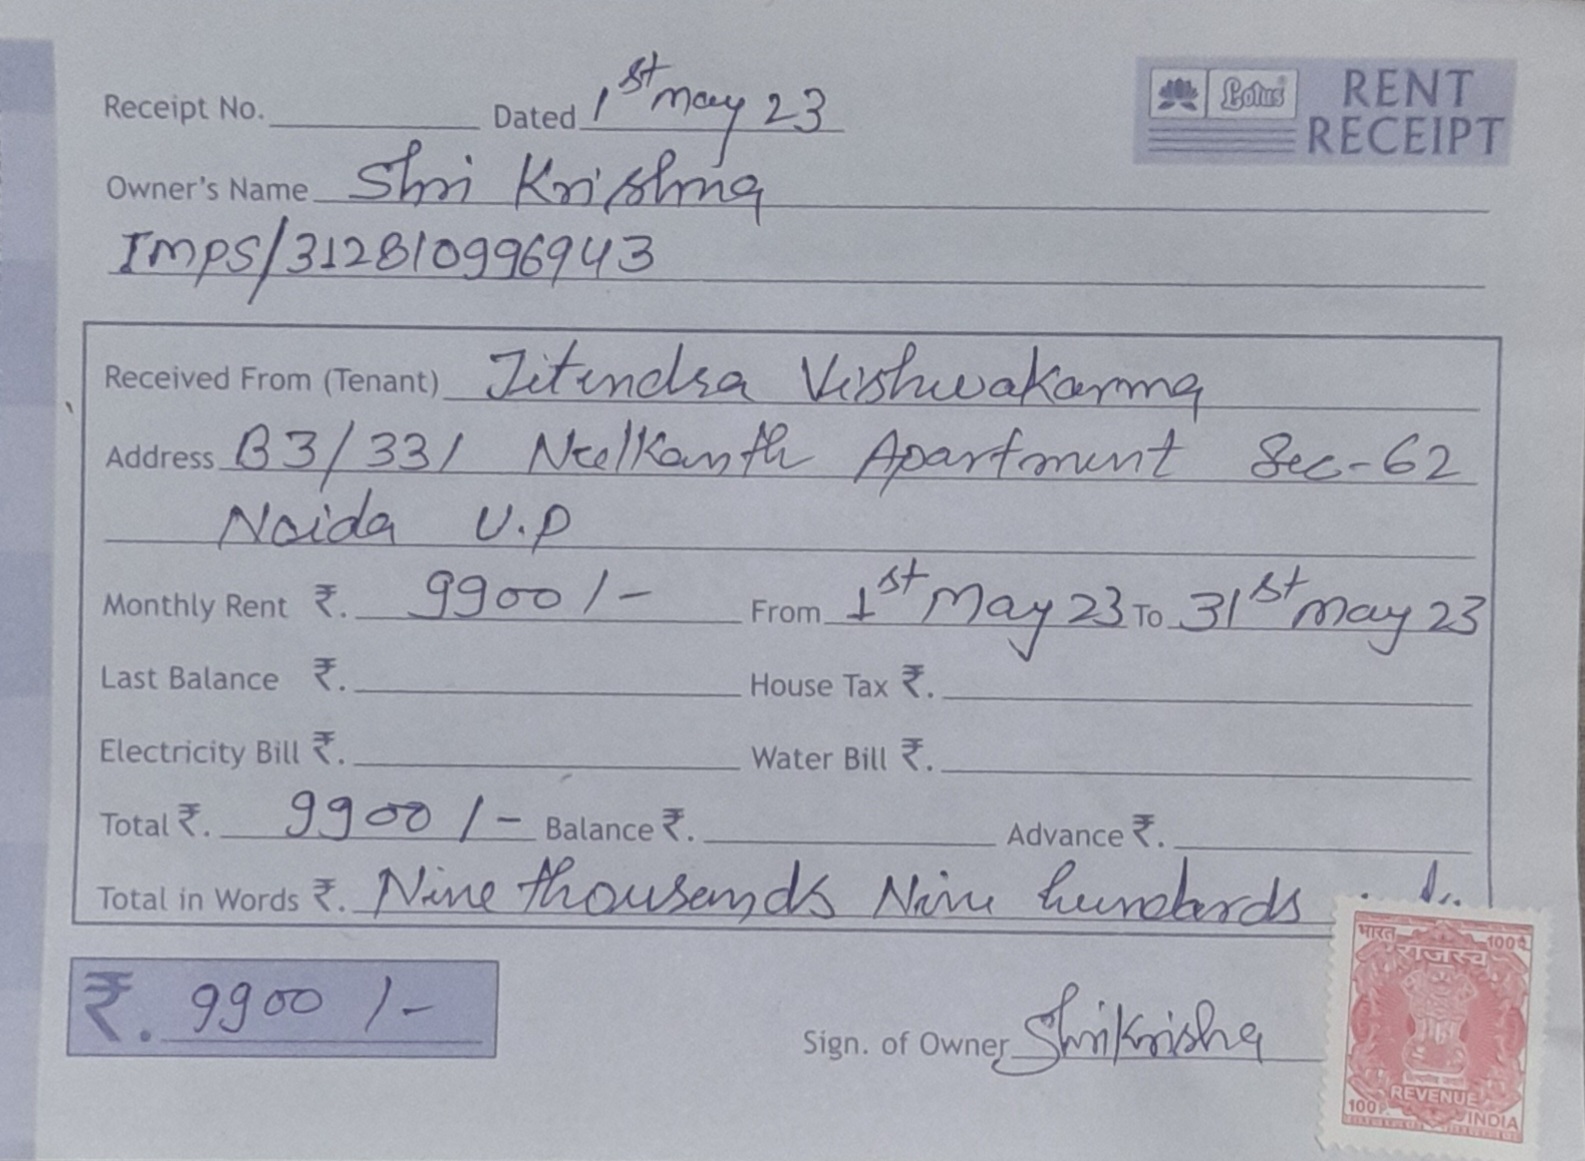 Receipt No. Dated 1st May 23
Lotus RENT RECEIPT
Owner's Name Shri Krishna
IMPS/312810996943
Received From (Tenant) Jitendra Vishwakarma
Address B3/331 Neelkanth Apartment Sec-62
Noida U.P
Monthly Rent ₹. 9900/- From 1st May 23 To 31st May 23
Last Balance ₹. House Tax ₹.
Electricity Bill ₹. Water Bill ₹.
Total ₹. 9900/- Balance ₹. Advance ₹.
Total in Words ₹. Nine thousands Nine hundards
₹. 9900/-
Sign. of Owner Shrikrishna
भारत 100 पै
राजस्व
REVENUE
100 P INDIA